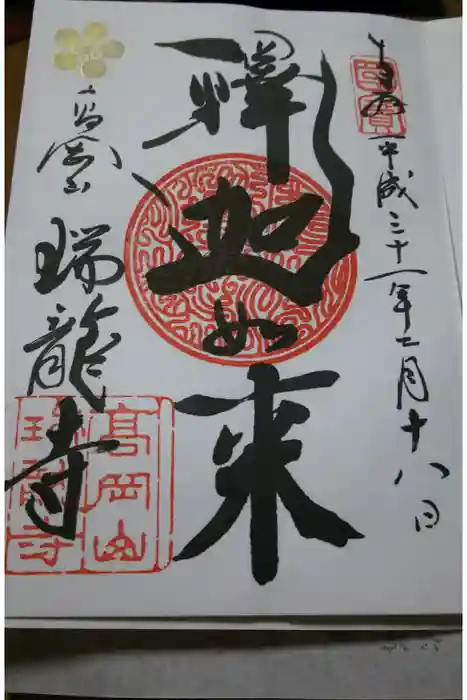 奉拝
平成三十一年二月十八日
釋迦如来
高岡山
瑞龍寺
高岡山
瑞龍寺